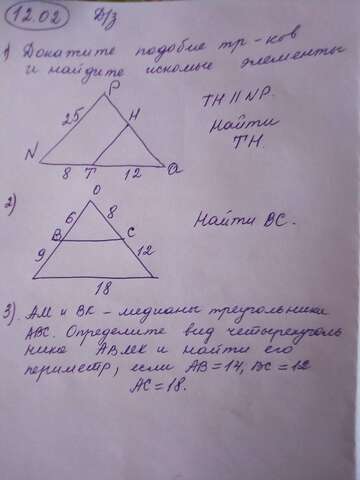 12.02 Д/з
1) Докажите подобие тр-ков
и найдите искомые элементы
P
25
H
TH || NP.
Найти
TH.
N
8
T
12
Q
2)
O
6
8
B
C
Найти BC.
9
12
18
3). AM и BK - медианы треугольника
ABC. Определите вид четырехуголь
ника ABMK и найти его
периметр, если AB = 14, BC = 12
AC = 18.